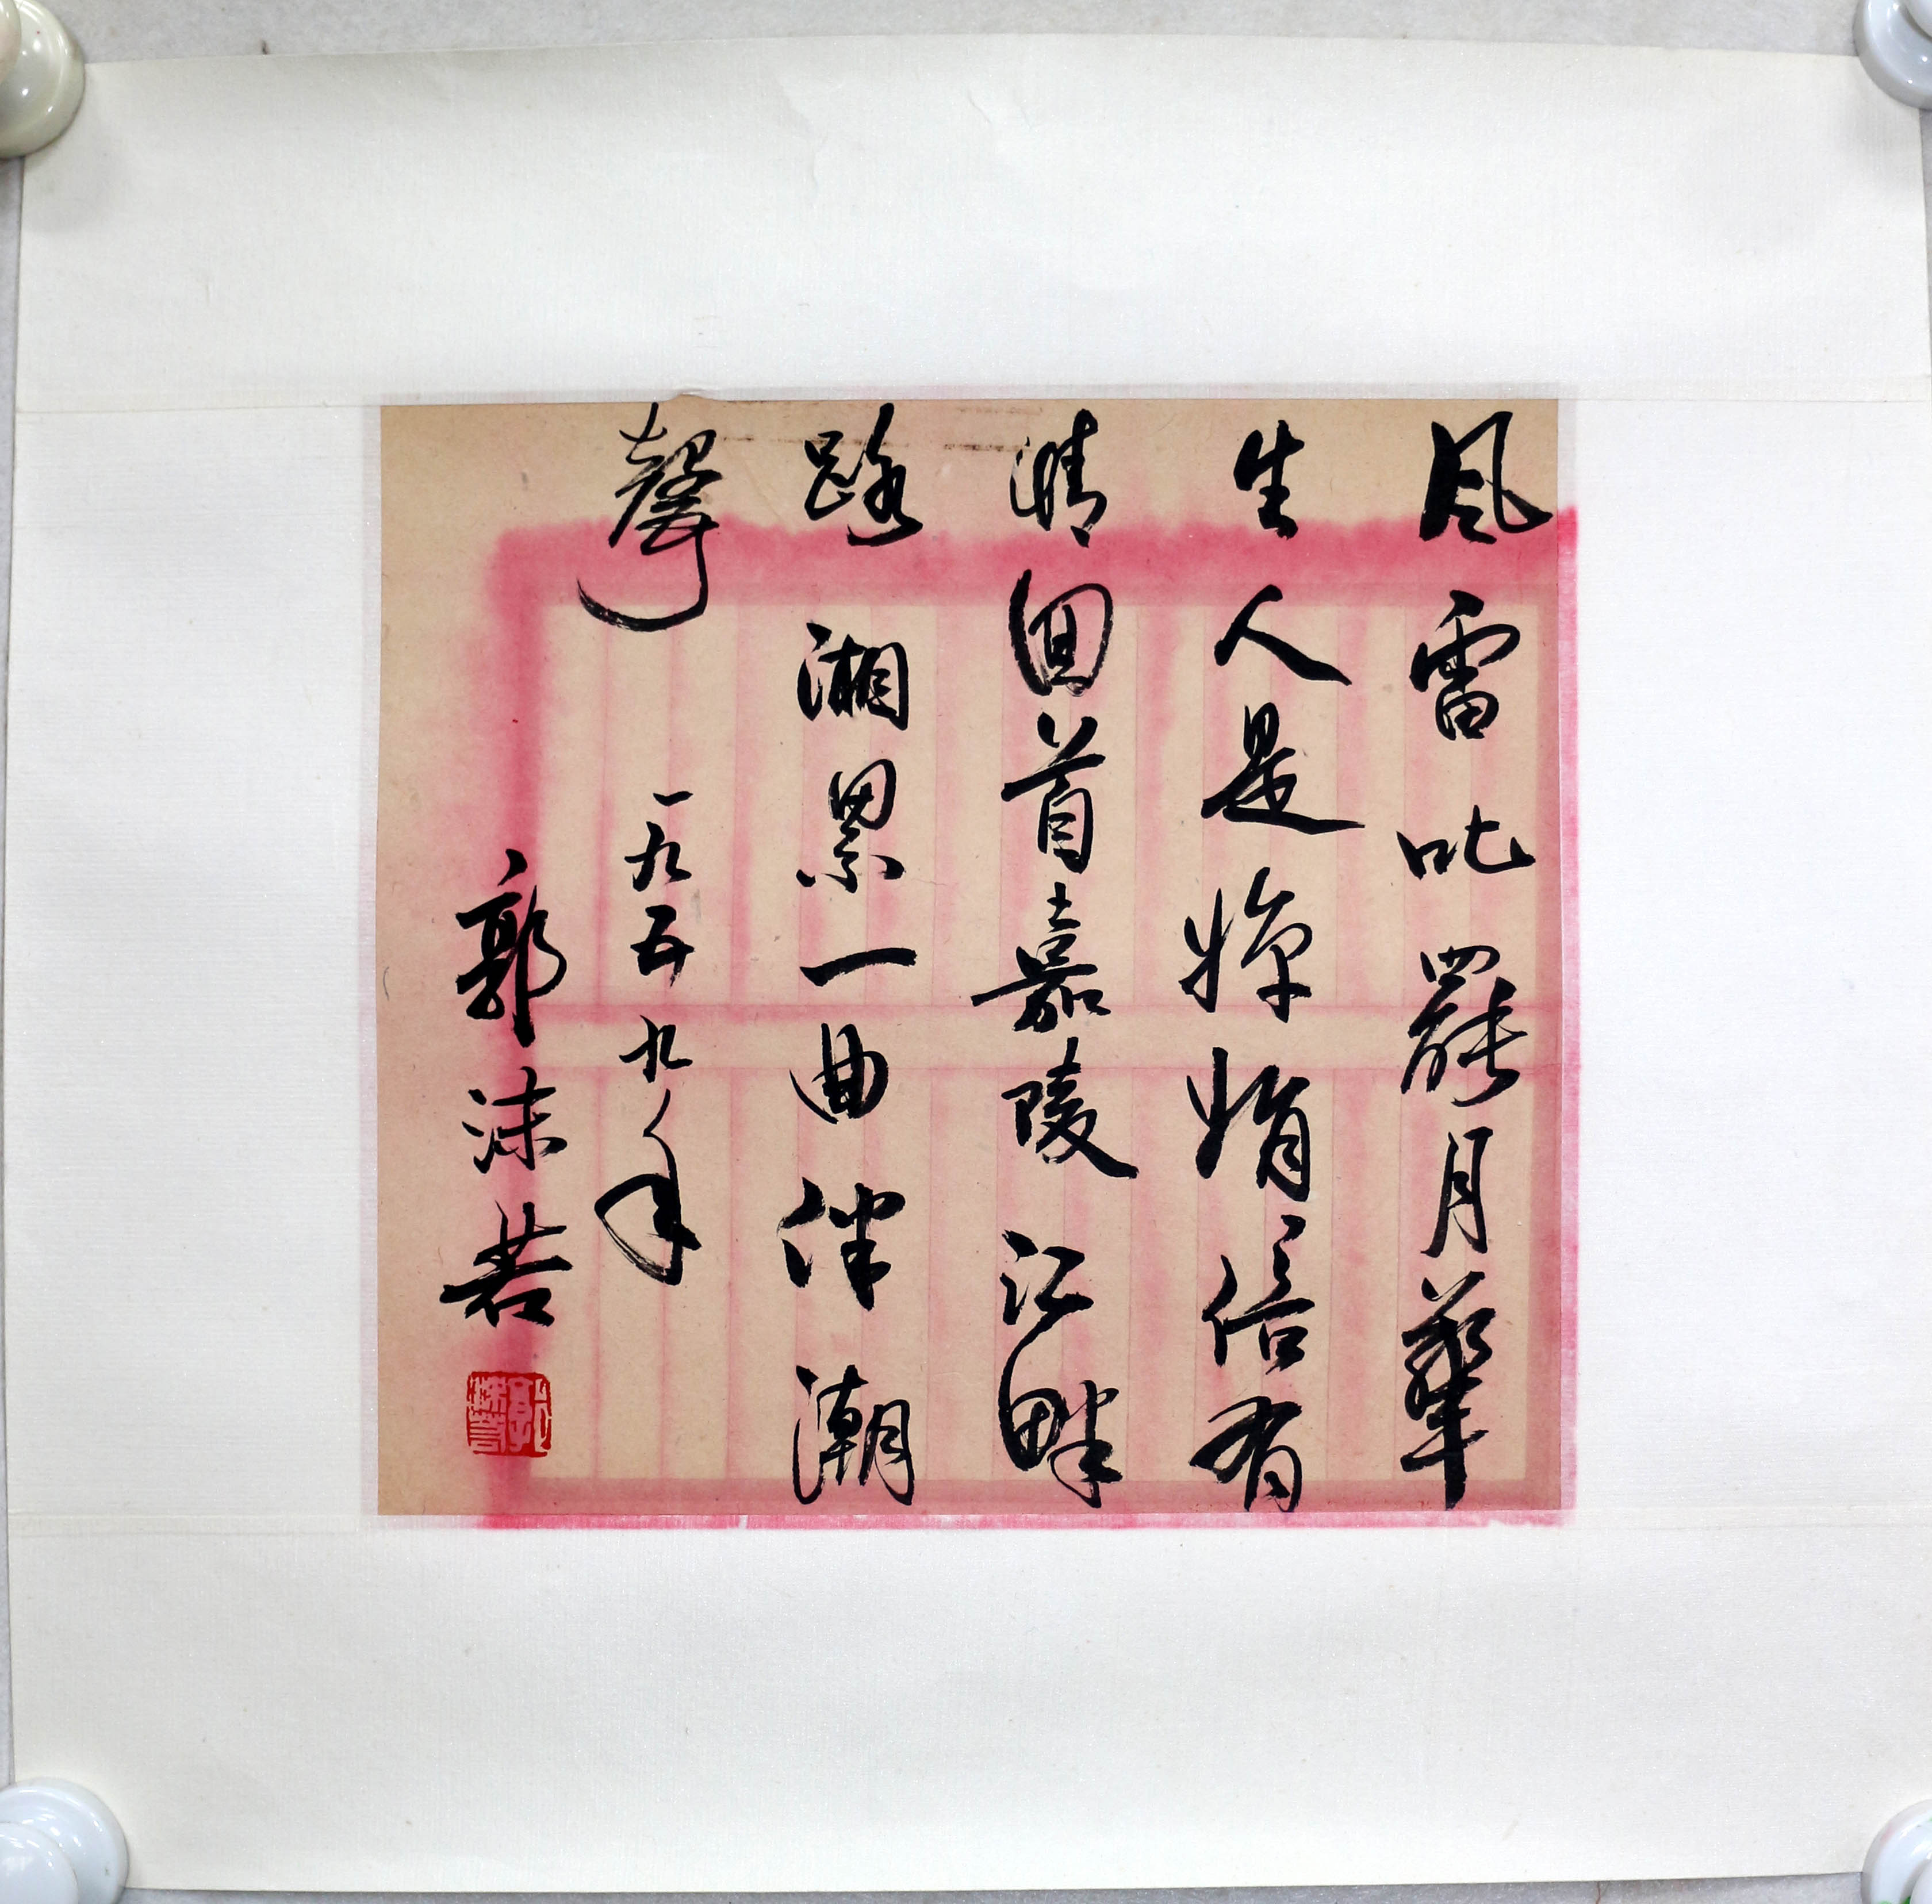 風雷叱罷月華
生人是嬋娟倍有
情回首嘉陵江畔
路湘累一曲伴潮
聲
一九五九年
郭沫若
郭沫若